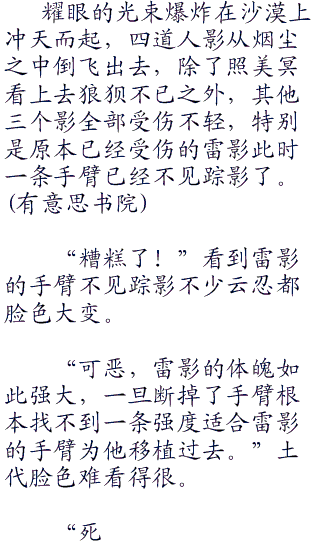 耀眼的光束爆炸在沙漠上
冲天而起，四道人影从烟尘
之中倒飞出去，除了照美冥
看上去狼狈不已之外，其他
三个影全部受伤不轻，特别
是原本已经受伤的雷影此时
一条手臂已经不见踪影了。
(有意思书院)
“糟糕了！”看到雷影
的手臂不见踪影不少云忍都
脸色大变。
“可恶，雷影的体魄如
此强大，一旦断掉了手臂根
本找不到一条强度适合雷影
的手臂为他移植过去。”土
代脸色难看得很。
“死